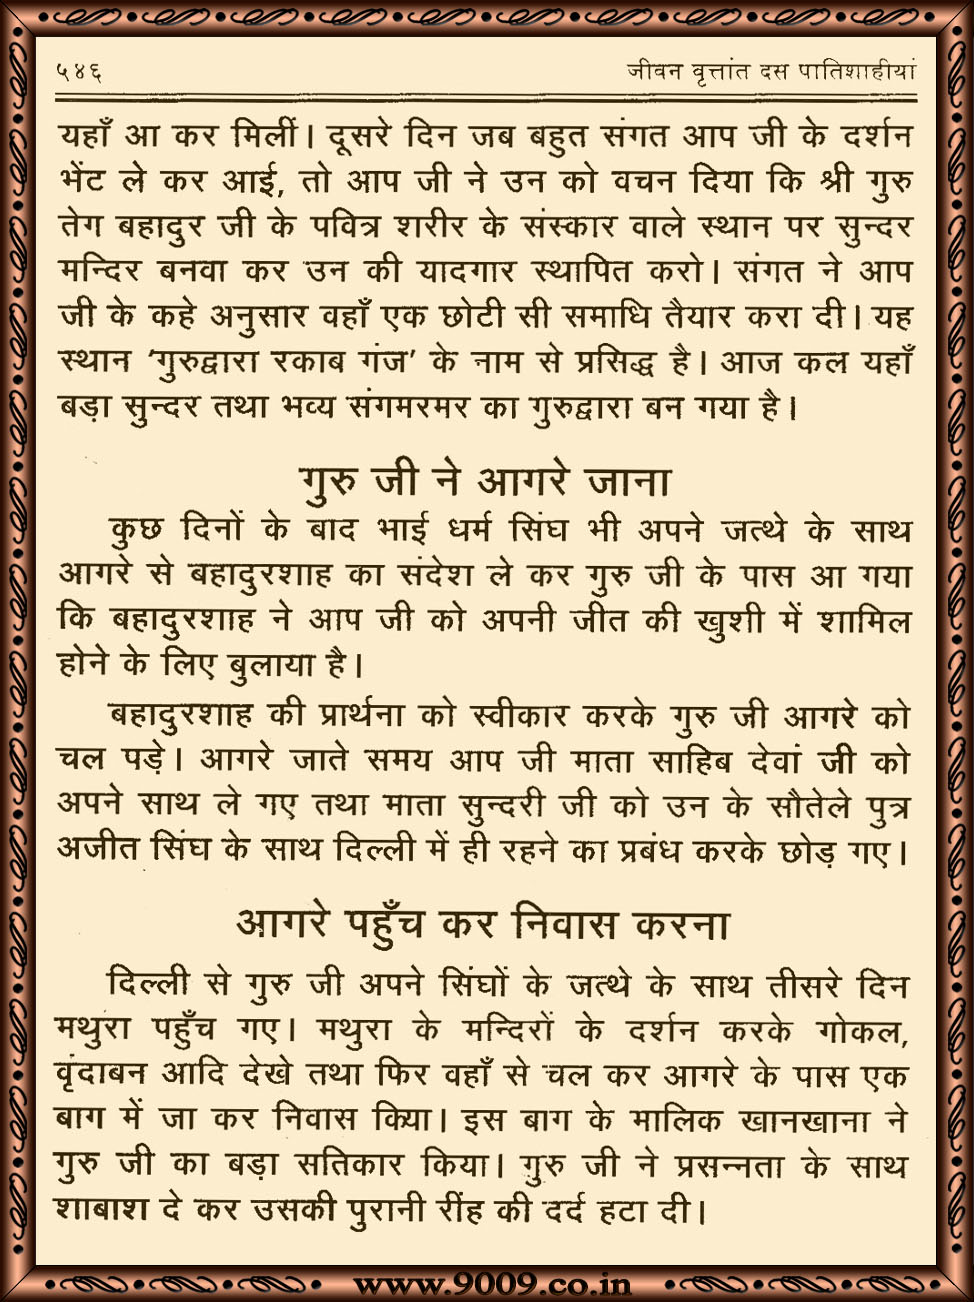 ५४६ जीवन वृत्तांत दस पातिशाहीयां
यहाँ आ कर मिलीं। दूसरे दिन जब बहुत संगत आप जी के दर्शन
भेंट ले कर आई, तो आप जी ने उन को वचन दिया कि श्री गुरु
तेग बहादुर जी के पवित्र शरीर के संस्कार वाले स्थान पर सुन्दर
मन्दिर बनवा कर उन की यादगार स्थापित करो। संगत ने आप
जी के कहे अनुसार वहाँ एक छोटी सी समाधि तैयार करा दी। यह
स्थान ‘गुरुद्वारा रकाब गंज’ के नाम से प्रसिद्ध है। आज कल यहाँ
बड़ा सुन्दर तथा भव्य संगमरमर का गुरुद्वारा बन गया है।
गुरु जी ने आगरे जाना
कुछ दिनों के बाद भाई धर्म सिंघ भी अपने जत्थे के साथ
आगरे से बहादुरशाह का संदेश ले कर गुरु जी के पास आ गया
कि बहादुरशाह ने आप जी को अपनी जीत की खुशी में शामिल
होने के लिए बुलाया है।
बहादुरशाह की प्रार्थना को स्वीकार करके गुरु जी आगरे को
चल पड़े। आगरे जाते समय आप जी माता साहिब देवां जी को
अपने साथ ले गए तथा माता सुन्दरी जी को उन के सौतेले पुत्र
अजीत सिंघ के साथ दिल्ली में ही रहने का प्रबंध करके छोड़ गए।
आगरे पहुँच कर निवास करना
दिल्ली से गुरु जी अपने सिंघों के जत्थे के साथ तीसरे दिन
मथुरा पहुँच गए। मथुरा के मन्दिरों के दर्शन करके गोकल,
वृंदाबन आदि देखे तथा फिर वहाँ से चल कर आगरे के पास एक
बाग में जा कर निवास किया। इस बाग के मालिक खानखाना ने
गुरु जी का बड़ा सतिकार किया। गुरु जी ने प्रसन्नता के साथ
शाबाश दे कर उसकी पुरानी रींह की दर्द हटा दी।
www.9009.co.in